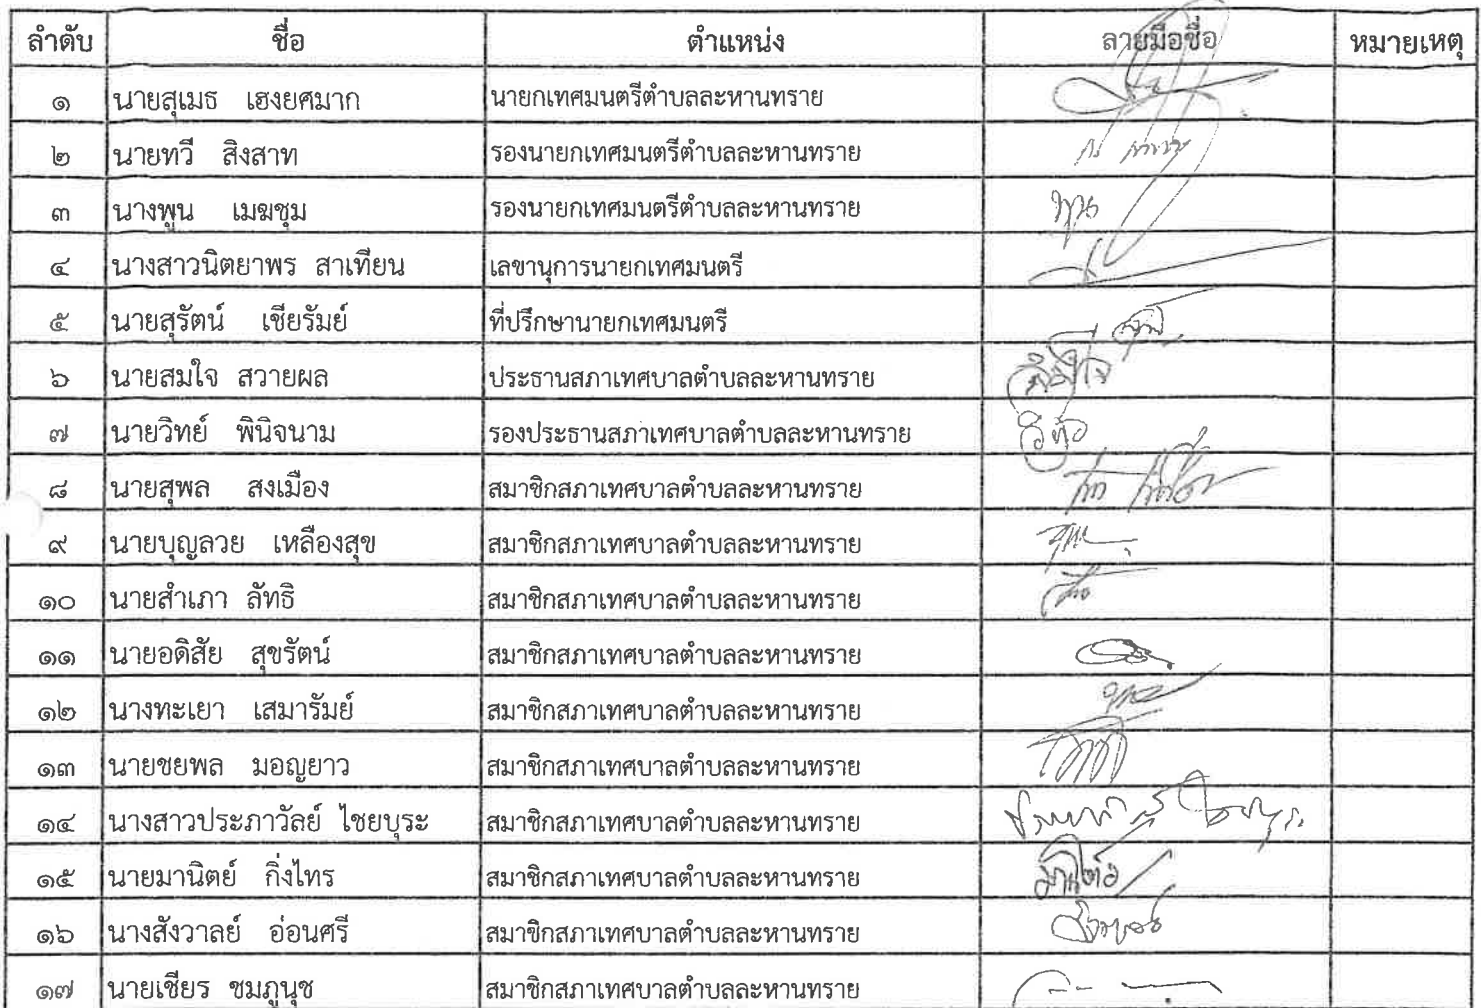 ลำดับ ชื่อ ตำแหน่ง ลายมือชื่อ หมายเหตุ
๑ นายสุเมธ เฮงยศมาก นายกเทศมนตรีตำบลละหานทราย
๒ นายทวี สิงสาท รองนายกเทศมนตรีตำบลละหานทราย
๓ นางพูน เมฆชุม รองนายกเทศมนตรีตำบลละหานทราย พูน
๔ นางสาวนิตยาพร สาเทียน เลขานุการนายกเทศมนตรี
๕ นายสุรัตน์ เชียรัมย์ ที่ปรึกษานายกเทศมนตรี
๖ นายสมใจ สวายผล ประธานสภาเทศบาลตำบลละหานทราย สมใจ
๗ นายวิทย์ พินิจนาม รองประธานสภาเทศบาลตำบลละหานทราย
๘ นายสุพล สงเมือง สมาชิกสภาเทศบาลตำบลละหานทราย
๙ นายบุญลวย เหลืองสุข สมาชิกสภาเทศบาลตำบลละหานทราย
๑๐ นายสำเภา ลัทธิ สมาชิกสภาเทศบาลตำบลละหานทราย
๑๑ นายอดิสัย สุขรัตน์ สมาชิกสภาเทศบาลตำบลละหานทราย
๑๒ นางทะเยา เสมารัมย์ สมาชิกสภาเทศบาลตำบลละหานทราย
๑๓ นายชยพล มอญยาว สมาชิกสภาเทศบาลตำบลละหานทราย
๑๔ นางสาวประภาวัลย์ ไชยบุระ สมาชิกสภาเทศบาลตำบลละหานทราย
๑๕ นายมานิตย์ กิ่งไทร สมาชิกสภาเทศบาลตำบลละหานทราย
๑๖ นางสังวาลย์ อ่อนศรี สมาชิกสภาเทศบาลตำบลละหานทราย
๑๗ นายเชียร ชมภูนุช สมาชิกสภาเทศบาลตำบลละหานทราย